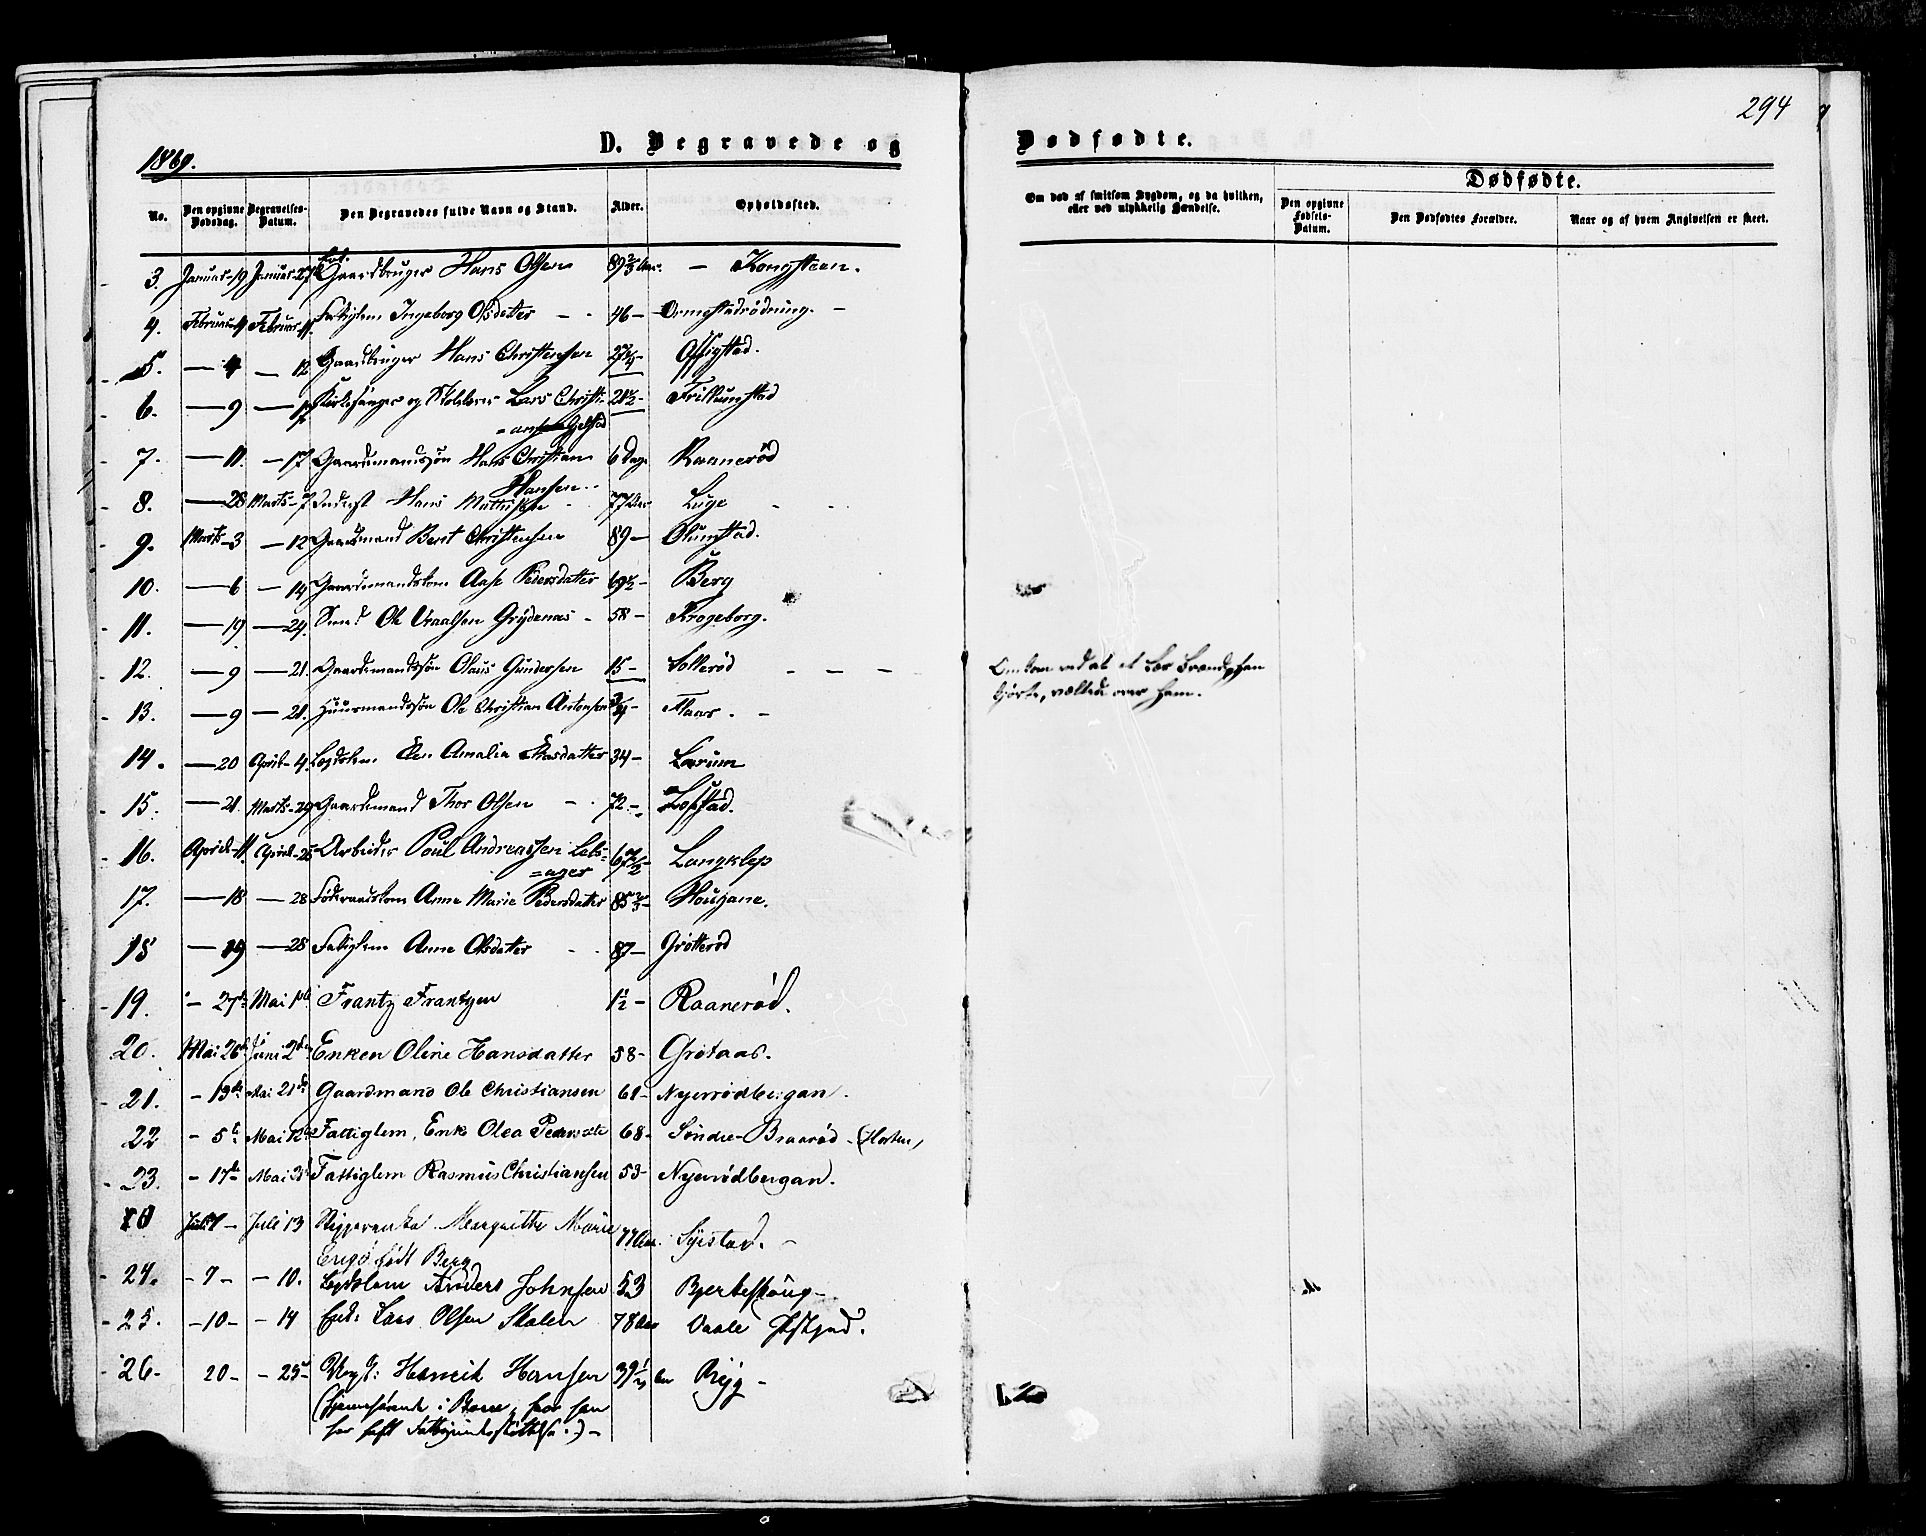 294
1869.
D. Begravede og Dødfødte.
No. Den opgivne Dødsdag. Begravelses-Datum. Den Begravedes fulde Navn og Stand. Alder. Opholdssted.
Om død af smitsom Sygdom, og da hvilken, eller ved ulykkelig Hændelse.
Dødfødte.
Den opgivne Fødsels-Datum. Den Dødfødtes Forældre. Naar og af hvem Angivelsen er skeet.
3. Januar-19 Januar-27 Gaardbruger Hans Olsen 89 2/3 Aar. - Kongsteen.
4. Februar-4 Februar-11. Fattiglem Ingeborg Olsdatter - 46 - Ormestadrødning. -
5. — 4 — 12 Gaardbruger Hans Christensen
6. — 9 — Kirkesanger og Skolelærer Lars Christi- 21 1/2 - Friskumstad
7. — 11. — 17 Gaardmandssøn Hans Christian 6 Dage Raanerød
Hansen
8. — 28 Marts-7 Inderst Hans Mathisen 77 Aar Luge
9. Marts-3 — 12 Gaardmand Bent Christensen 89 — Olumstad.
10. — 6 — 14 Gaardmandskone Aase Pedersdatter 69 1/2 - Berg
11. — 19 — 24. Smed Ole Graalsen Grydenæs - 58 - Krogeborg.
12. — 9 — 21. Gaardmandssøn Olaus Gundersen 15 - Sollerød
Omkom ved at et Læs Brænde, han
kjørte, væltede over ham.
13. — 9 — 21. Huusmandssøn Ole Christian Antonsen 3/4 - Aaar.
14. — 20 April-4. Lægdslem Amalia 34 -
15. — 21. Marts-29 Gaardmand Thor Olsen - 72 -
16. April-11. April-25 Arbeider Poul Andreassen Lebs-
=ager 67 1/2 - Langklep
17. — 18 — 28 Føderaadskone Anne Marie Pedersdatter 85 2/3 - Hougane.
18 — 19 — 28 Fattiglem Anne Olsdatter 87 — Grøtterød
19. - 27de Mai 1ste Frantz Frantzen 1 1/2 - Raanerød.
20. Mai 26de Juni 2den Enken Oline Hansdatter 58 - Grøtaas.
21. - 13de Mai 21de Gaardmand Ole Christiansen 61 - Nyerrødbergan.
22 - 5te Mai 12te Fattiglem, Enke Olea Pedersdtr 68 - Søndre-Braarød - (Horten)
23. - 17de Mai Fattiglem Rasmus Christiansen 53 - Nyerrødbergan.
Juli 7 - Juli 13 Margrethe Marie
Engø født Berg 77 Aar.
24. - 7 - - 10. Lægdslem Anders Johnsen 53 Bjerkeskoug -
25. - 10 - - 14 Lars Olsen Skalen 78 Aar Vaale Præstgjed.
26 - 20 - - 25 - Ungk: Henrik Hansen 39 1/2 Aar Ryg -
(hjemhørende i Borre, hvor han
har havt Fattigunderstøttelse.) -